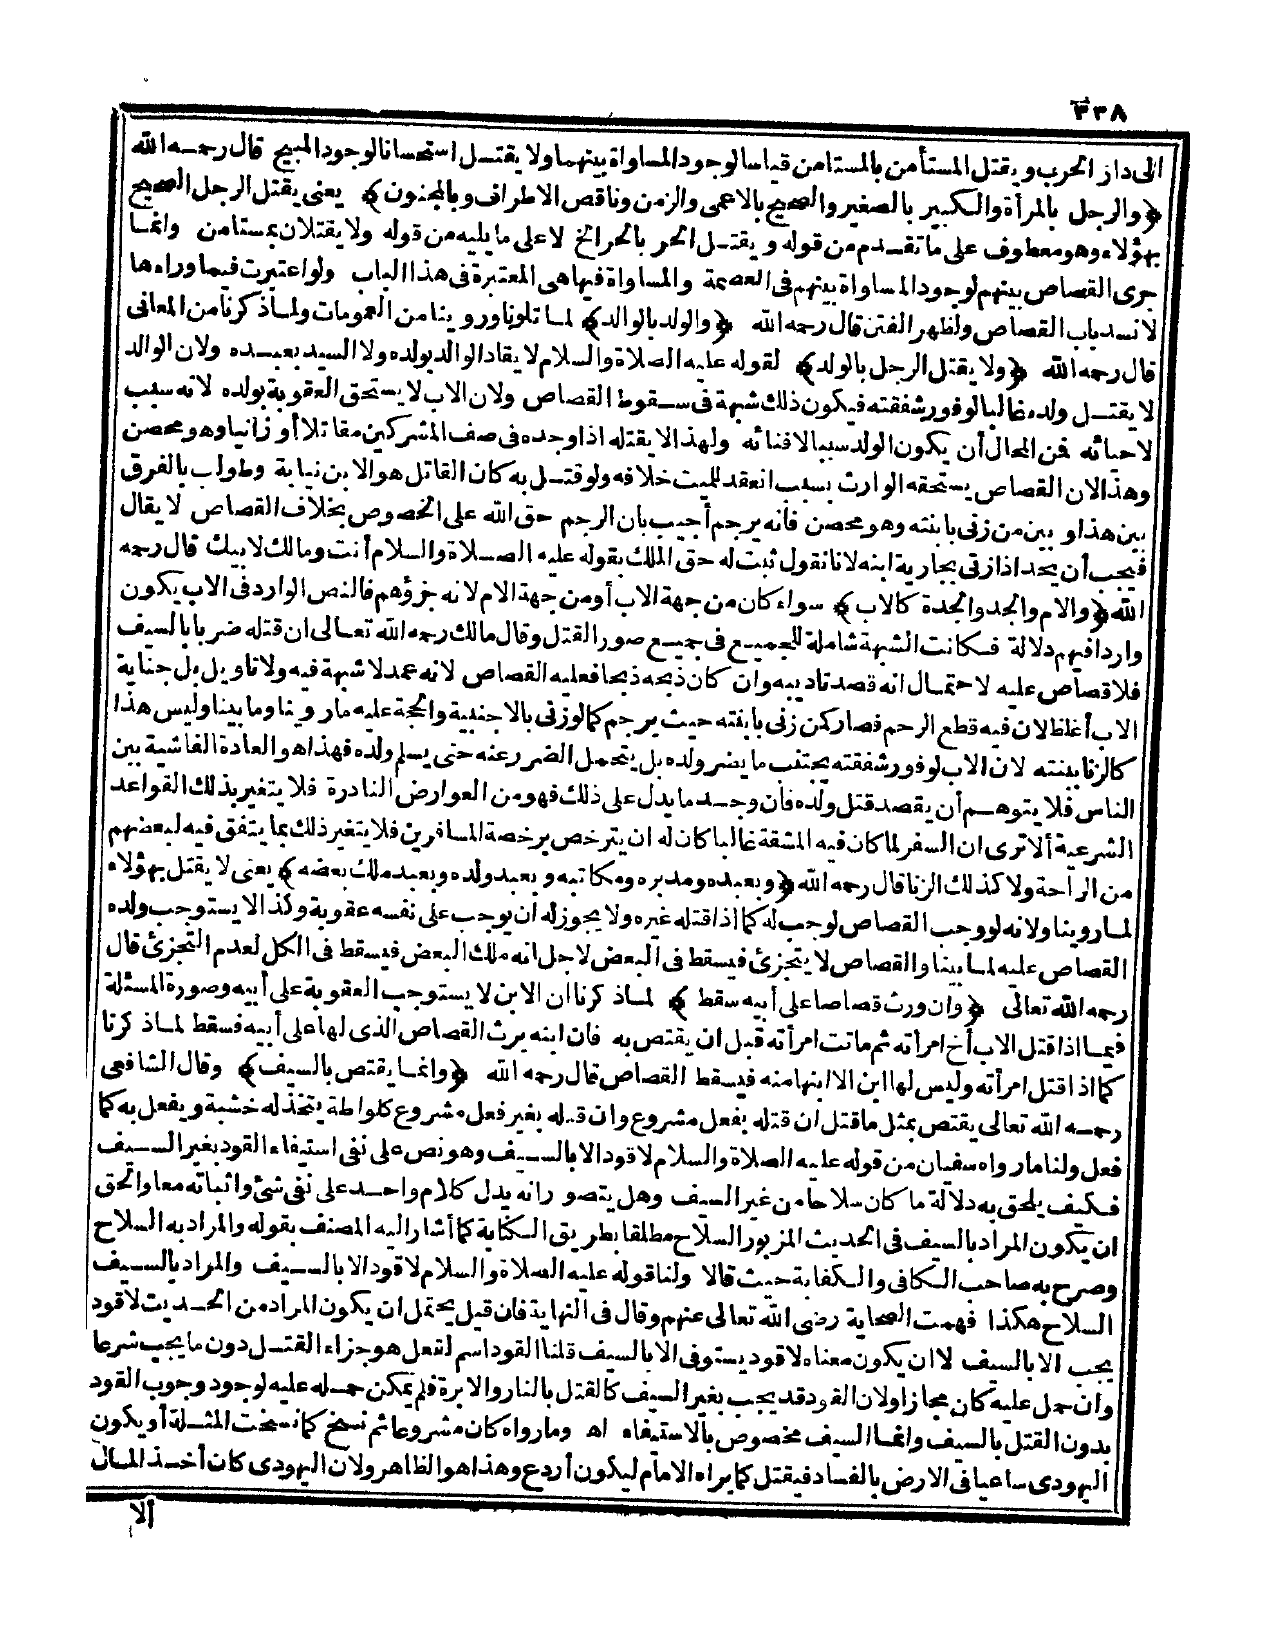 ٣٣٨
الى دار الحرب ويقتل المستأمن بالمستامن قياسا لوجود المساواة بينهما ولا يقتل استحسانا لوجود المبيح قال رحمه الله
﴿والرجل بالمرأة والكبير بالصغير والصحيح بالاعمى والزمن وناقص الاطراف وبالمجنون﴾ يعنى يقتل الرجل الصحيح
بهؤلاء وهو معطوف على ما تقدم من قوله ويقتل الحر بالحر الخ لا على ما يليه من قوله ولا يقتلان بمستامن وانما
جرى القصاص بينهم لوجود المساواة بينهم فى العصمة والمساواة فيها هى المعتبرة فى هذا الباب ولو اعتبرت فيما وراءها
لانسد باب القصاص ولظهر الفتن قال رحمه الله ﴿والولد بالوالد﴾ لما تلونا وروينا من العمومات ولما ذكرنا من المعانى
قال رحمه الله ﴿ولا يقتل الرجل بالولد﴾ لقوله عليه الصلاة والسلام لا يقاد الوالد بولده ولا السيد بعبده ولان الوالد
لا يقتل ولده غالبا لوفور شفقته فيكون ذلك شبهة فى سقوط القصاص ولان الاب لا يستحق العقوبة بولده لانه سبب
لاحيائه فمن المحال أن يكون الولد سببا لافنائه ولهذا لا يقتله اذا وجده فى صف المشركين مقاتلا أو زانيا وهو محصن
وهذا لان القصاص يستحقه الوارث بسبب انعقد للميت خلافه ولو قتل به كان القاتل هو الابن نيابة وطولب بالفرق
بين هذا و بين من زنى بابنته وهو محصن فانه يرجم أجيب بان الرجم حق الله على الخصوص بخلاف القصاص لا يقال
فيجب أن يحد اذا زنى بجارية ابنه لانا نقول ثبت له حق الملك بقوله عليه الصلاة والسلام أنت ومالك لابيك قال رحمه
الله ﴿والام والجد والجدة كالاب﴾ سواء كان من جهة الاب أو من جهة الام لانه جزؤهم فالنص الوارد فى الاب يكون
واردا فيهم دلالة فكانت الشبهة شاملة للجميع فى جميع صور القتل وقال مالك رحمه الله تعالى ان قتله ضربا بالسيف
فلا قصاص عليه لاحتمال انه قصد تاديبه وان كان ذبحه ذبحا فعليه القصاص لانه عمد لا شبهة فيه ولا تاويل بل جناية
الاب أغلظ لان فيه قطع الرحم فصار كمن زنى بابنته حيث يرجم كما لو زنى بالاجنبية والحجة عليه ما روينا وما بينا وليس هذا
كالزنا ببنته لان الاب لوفور شفقته يجتنب ما يضر ولده بل يتحمل الضرر عنه حتى يسلم ولده فهذا هو العادة الفاشية بين
الناس فلا يتوهم أن يقصد قتل ولده فان وجد ما يدل على ذلك فهو من العوارض النادرة فلا يتغير بذلك القواعد
الشرعية ألا ترى ان السفر لما كان فيه المشقة غالبا كان له ان يترخص برخصة المسافرين فلا يتغير ذلك بما يتفق فيه لبعضهم
من الراحة ولا كذلك الزنا قال رحمه الله ﴿وبعبده ومدبره ومكاتبه وبعبد ولده وبعبد ملك بعضه﴾ يعنى لا يقتل بهؤلاء
لما روينا ولانه لو وجب القصاص لوجب له كما اذا قتله غيره ولا يجوز له ان يوجب على نفسه عقوبة وكذا لا يستوجب ولده
القصاص عليه لما بينا والقصاص لا يتجزئ فيسقط فى البعض لاجل انه ملك البعض فيسقط فى الكل لعدم التجزئ قال
رحمه الله تعالى ﴿وان ورث قصاصا على أبيه سقط﴾ لما ذكرنا ان الابن لا يستوجب العقوبة على أبيه وصورة المسئلة
فيما اذا قتل الاب أخ امرأته ثم ماتت امرأته قبل ان يقتص به فان ابنه يرث القصاص الذى لها على أبيه فسقط لما ذكرنا
كما اذا قتل امرأته وليس لها ابن الا ابنها منه فيسقط القصاص قال رحمه الله ﴿وانما يقتص بالسيف﴾ وقال الشافعى
رحمه الله تعالى يقتص بمثل ما قتل ان قتله بفعل مشروع وان قتله بغير فعل مشروع كلواطة يتخذ له خشبة ويفعل به كما
فعل ولنا ما رواه سفيان من قوله عليه الصلاة والسلام لا قود الا بالسيف وهو نص على نفى استيفاء القود بغير السيف
فكيف يلحق به دلالة ما كان سلاحا من غير السيف وهل يتصور انه يدل كلام واحد على نفى شئ واثباته معا والحق
ان يكون المراد بالسيف فى الحديث المزبور السلاح مطلقا بطريق الكناية كما أشار اليه المصنف بقوله والمراد به السلاح
وصرح به صاحب الكافى والكفاية حيث قالا ولنا قوله عليه الصلاة والسلام لا قود الا بالسيف والمراد بالسيف
السلاح هكذا فهمت الصحابة رضى الله تعالى عنهم وقال فى النهاية فان قيل يحتمل ان يكون المراد من الحديث لا قود
يجب الا بالسيف لا ان يكون معناه لا قود يستوفى الا بالسيف قلنا القود اسم لفعل هو جزاء القتل دون ما يجب شرعا
وان حمل عليه كان مجازا ولان القود قد يجب بغير السيف كالقتل بالنار والابرة فلم يمكن حمله عليه لوجود وجوب القود
بدون القتل بالسيف وانما السيف مخصوص بالاستيفاء اه وما رواه كان مشروعا ثم نسخ كما نسخت المثلة أو يكون
اليهودى ساعيا فى الارض بالفساد فيقتل كما يراه الامام ليكون أردع وهذا هو الظاهر ولان اليهودى كان أخذ المال
ألا